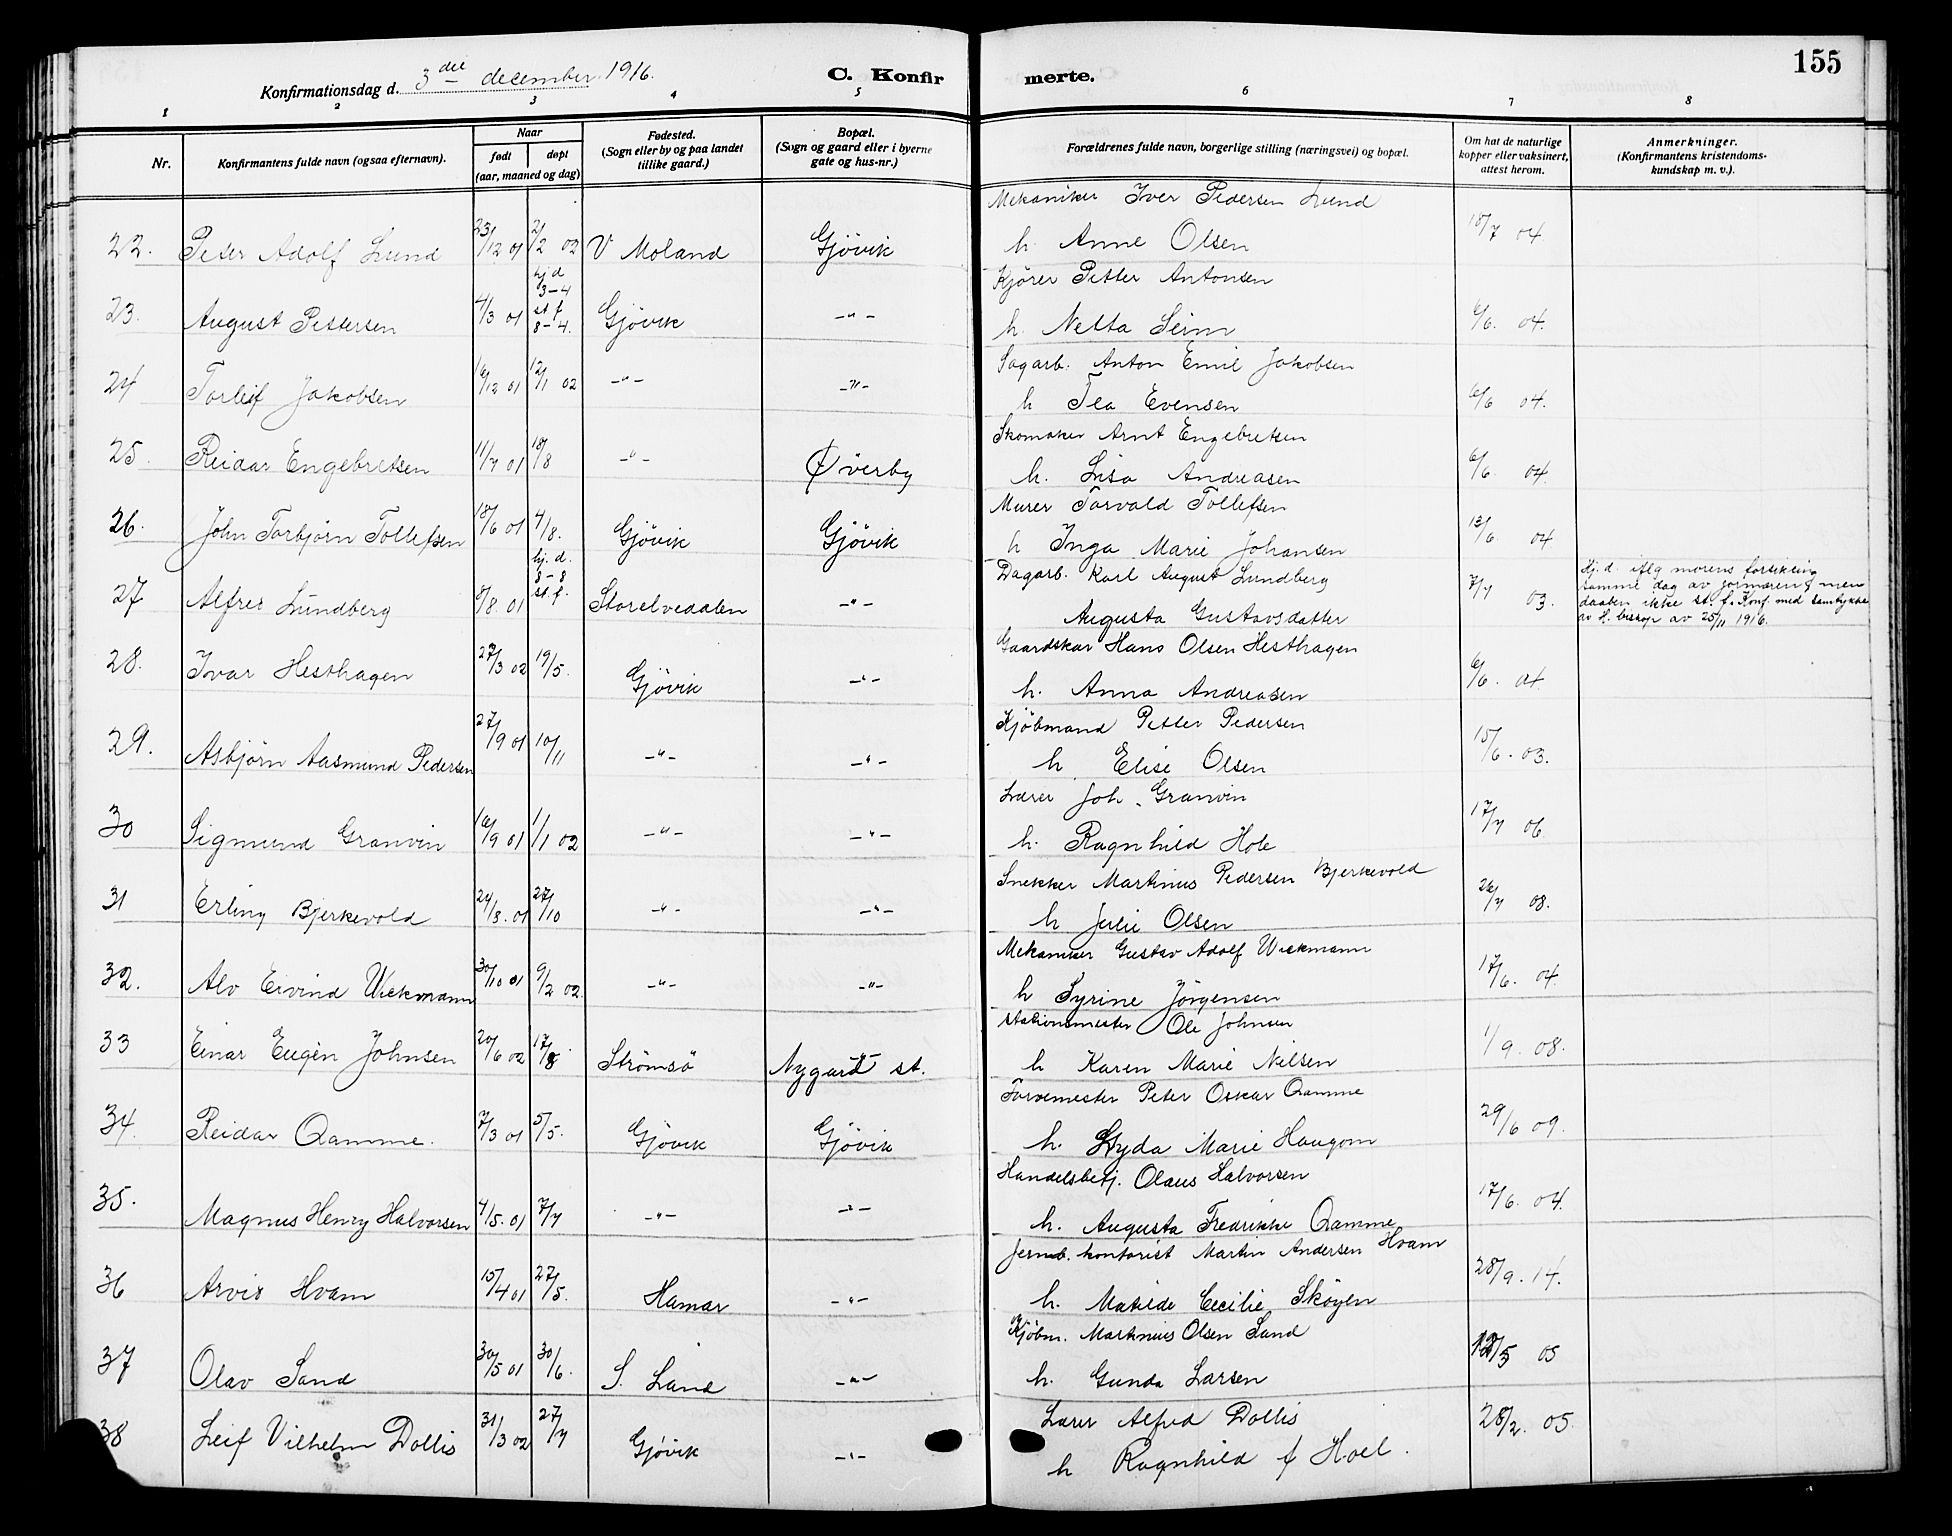 155
Konfirmationsdag d. 3die december 1916.
C. Konfirmerte.
1 2 3 4 5 6 7 8
Nr.
Konfirmantens fulde navn (ogsaa efternavn).
Naar
født
døpt
(aar, maaned og dag)
Fødested.
(Sogn eller by og paa landet
tillike gaard.)
Bopæl.
(Sogn og gaard eller i byerne
gate og hus-nr.)
Forældrenes fulde navn, borgerlige stilling (næringsvei) og bopæl.
Om hat de naturlige
kopper eller vaksinert,
attest herom.
Anmerkninger.
(Konfirmantens kristendoms-
kundskap m. v.).
Mekaniker Iver Pedersen Lund
22. Peter Adolf Lund 23/12 01 2/2 02 V Moland Gjövik h. Anne Olsen 18/7 04
Kjörer Petter Antonsen
23. August Pettersen 4/3 01 hj d 3-4 st f 8-4. Gjövik -"- h. Netta Seim 6/6. 04.
Sagarb. Anton Emil Jakobsen
24 Torleif Jakobsen 16/12 01 12/1 02 -"- -"- h Tea Evensen 6/6 04.
Skomaker Arnt Engebretsen
25. Reidar Engebretsen 11/7 01 18/8 -"- Överby h. Lisa Andreasen 6/6 04.
Murer Torvald Tollefsen
26. John Torbjörn Tollefsen 18/6 01 4/8. Gjövik Gjövik h Inga Marie Johansen 13/6 04
Dagarb. Karl August Lundberg
27 Alfred Lundberg 8/8. 01 hj. d. 8-8 st. f. Storelvedalen -"- Augusta Gustavsdatter 7/7 03.
Hj. d. iflg morens forsikring
samme dag av jormoren & men
daaben ikke st. f. Konf. med samtykke
av H. biskop av 25/11 1916.
Gaardskar Hans Olsen Hesthagen
28. Ivar Hesthagen 27/3 02 19/5. Gjövik -"- h. Anna Andreasen 6/6. 04.
Kjöbmand Petter Pedersen
29. Asbjörn Aasmund Pedersen 27/9 01 10/11 -"- -"- h Elise Olsen 15/6. 03.
Lærer Joh. Granvin
30 Sigmund Granvin 16/9 01 1/1 02 -"- -"- h. Ragnhild Hole 17/7 06
Snekker Martinius Pedersen Bjerkevold
31 Erling Bjerkevold 24/8. 01 27/10 -"- -"- h Julie Olsen 26/7 08.
Mekaniker Gustav Adolf Wiekmann
32. Alv Eivind Wiekmann 30/10 01 9/2 02. -"- -"- h Syrine Jörgensen 17/6. 04.
Stationsmester Ole Johnsen
33 Einar Eugèn Johnsen 20/6 02 17/8 Strömsö Nygard st. h Karen Marie Nilsen 1/9. 08.
Farvemester Peter Oskar Qamme
34. Reidar Qamme. 7/3 01 5/5. Gjövik Gjövik h. Lyda Marie Haugom 29/6 09.
Handelsbetj. Olaus Halvorsen
35. Magnus Henry Halvorsen 4/5. 01 7/7 -"- -"- h. Augusta Fredrikke Qamme 17/6. 04.
Jernb. kontorist Martin Andersen Hvam
36 Arvid Hvam 15/4 01 27/5. Hamar -"- h. Matilde Cecilie Sköyen 28/9. 14.
Kjöbm. Martinius Olsen Sand
37 Olav Sand 30/5 01 30/6. S. Land -"- h. Gunda Larsen 05
Lærer Alfred Dollis
38 Leif Vilhelm Dollis 31/3 02 27/7 Gjövik -"- h Ragnhild f Hoel. 28/2. 05.